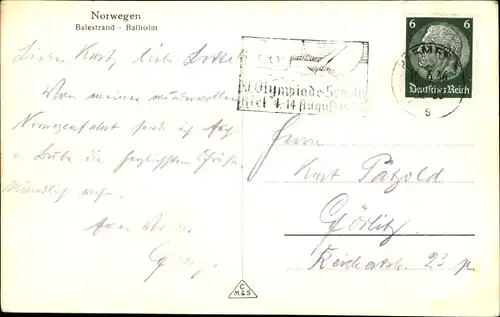 Norwegen
Balestrand - Balholm
Lieber Kurt, liebe Lotte
Von meiner wundervollen
Norwegenfahrt sende ich
u. Bube die herzlichsten Grüße.
Mündlich mehr.
Georg.
XI. Olympiade-Segeln
Kiel 4.-14. August
6 6
Deutsches Reich
BREMEN
s
Herrn
Kurt Patzold
Görlitz
Reichertstr. 23 pt
C
M&S